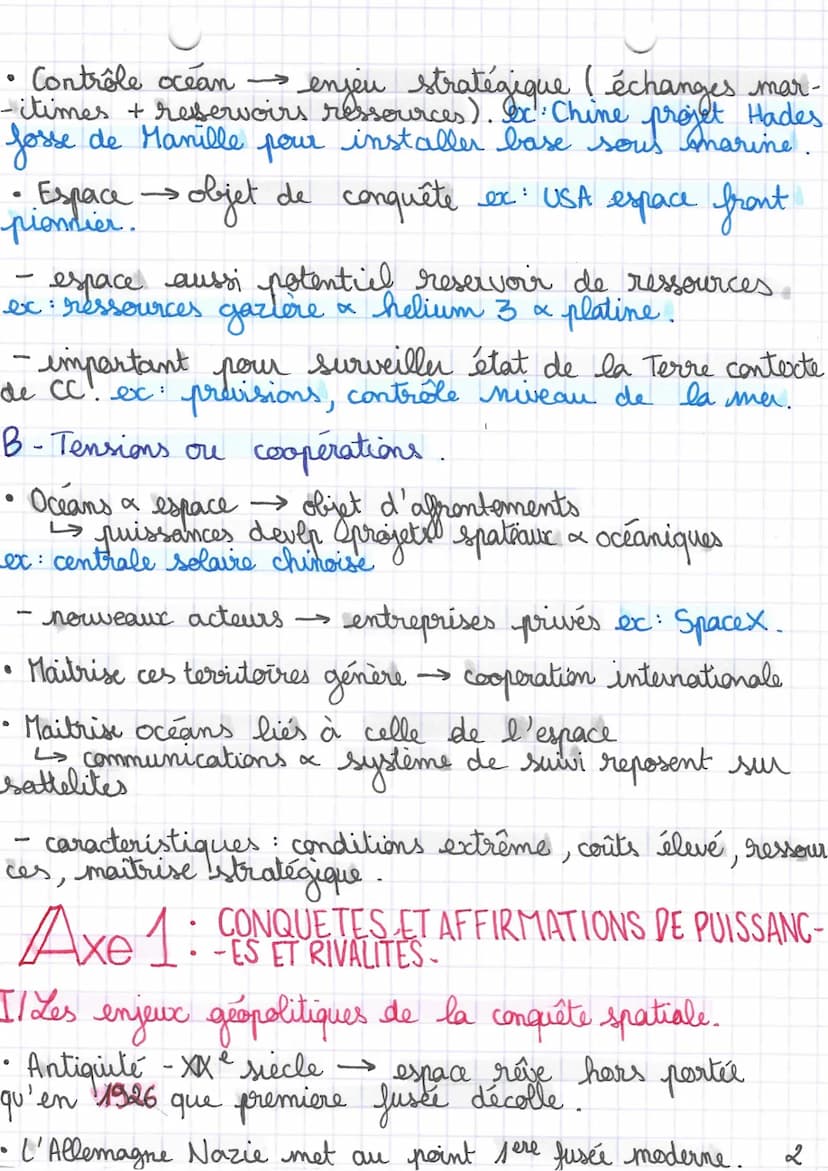 • Contrôle océan → enjeu stratégique ( échanges mar-
-itimes + reservoirs ressources). ex : Chine projet Hades
fosse de Manille pour installer base sous marine.
• Espace → objet de conquête ex : USA espace front
pionnier.
– espace aussi potentiel reservoir de ressources.
ex : ressources gazière & helium 3 & platine.
– important pour surveiller état de la Terre contexte
de CC. ex : prévisions, contrôle niveau de la mer.
B - Tensions ou coopérations.
• Océans & espace → objet d'affrontements
↳ puissances devlp projets spatiaux & océaniques
ex : centrale solaire chinoise
– nouveaux acteurs → entreprises privés ex : SpaceX.
• Maitrise ces territoires génère → cooperation internationale
• Maitrise océans liés à celle de l'espace
↳ communications & système de suivi reposent sur
sattelites
– caracteristiques : conditions extrême, coûts élevé, ressour
ces, maîtrise stratégique.
Axe 1 : CONQUETES ET AFFIRMATIONS DE PUISSANC-
-ES ET RIVALITÉS.
I/ Les enjeux géopolitiques de la conquête spatiale.
• Antiquité - XIXe siècle → espace rêve hors portée
qu'en 1926 que premiere fusée décolle.
• L'Allemagne Nazie met au point 1ere fusée moderne. 2